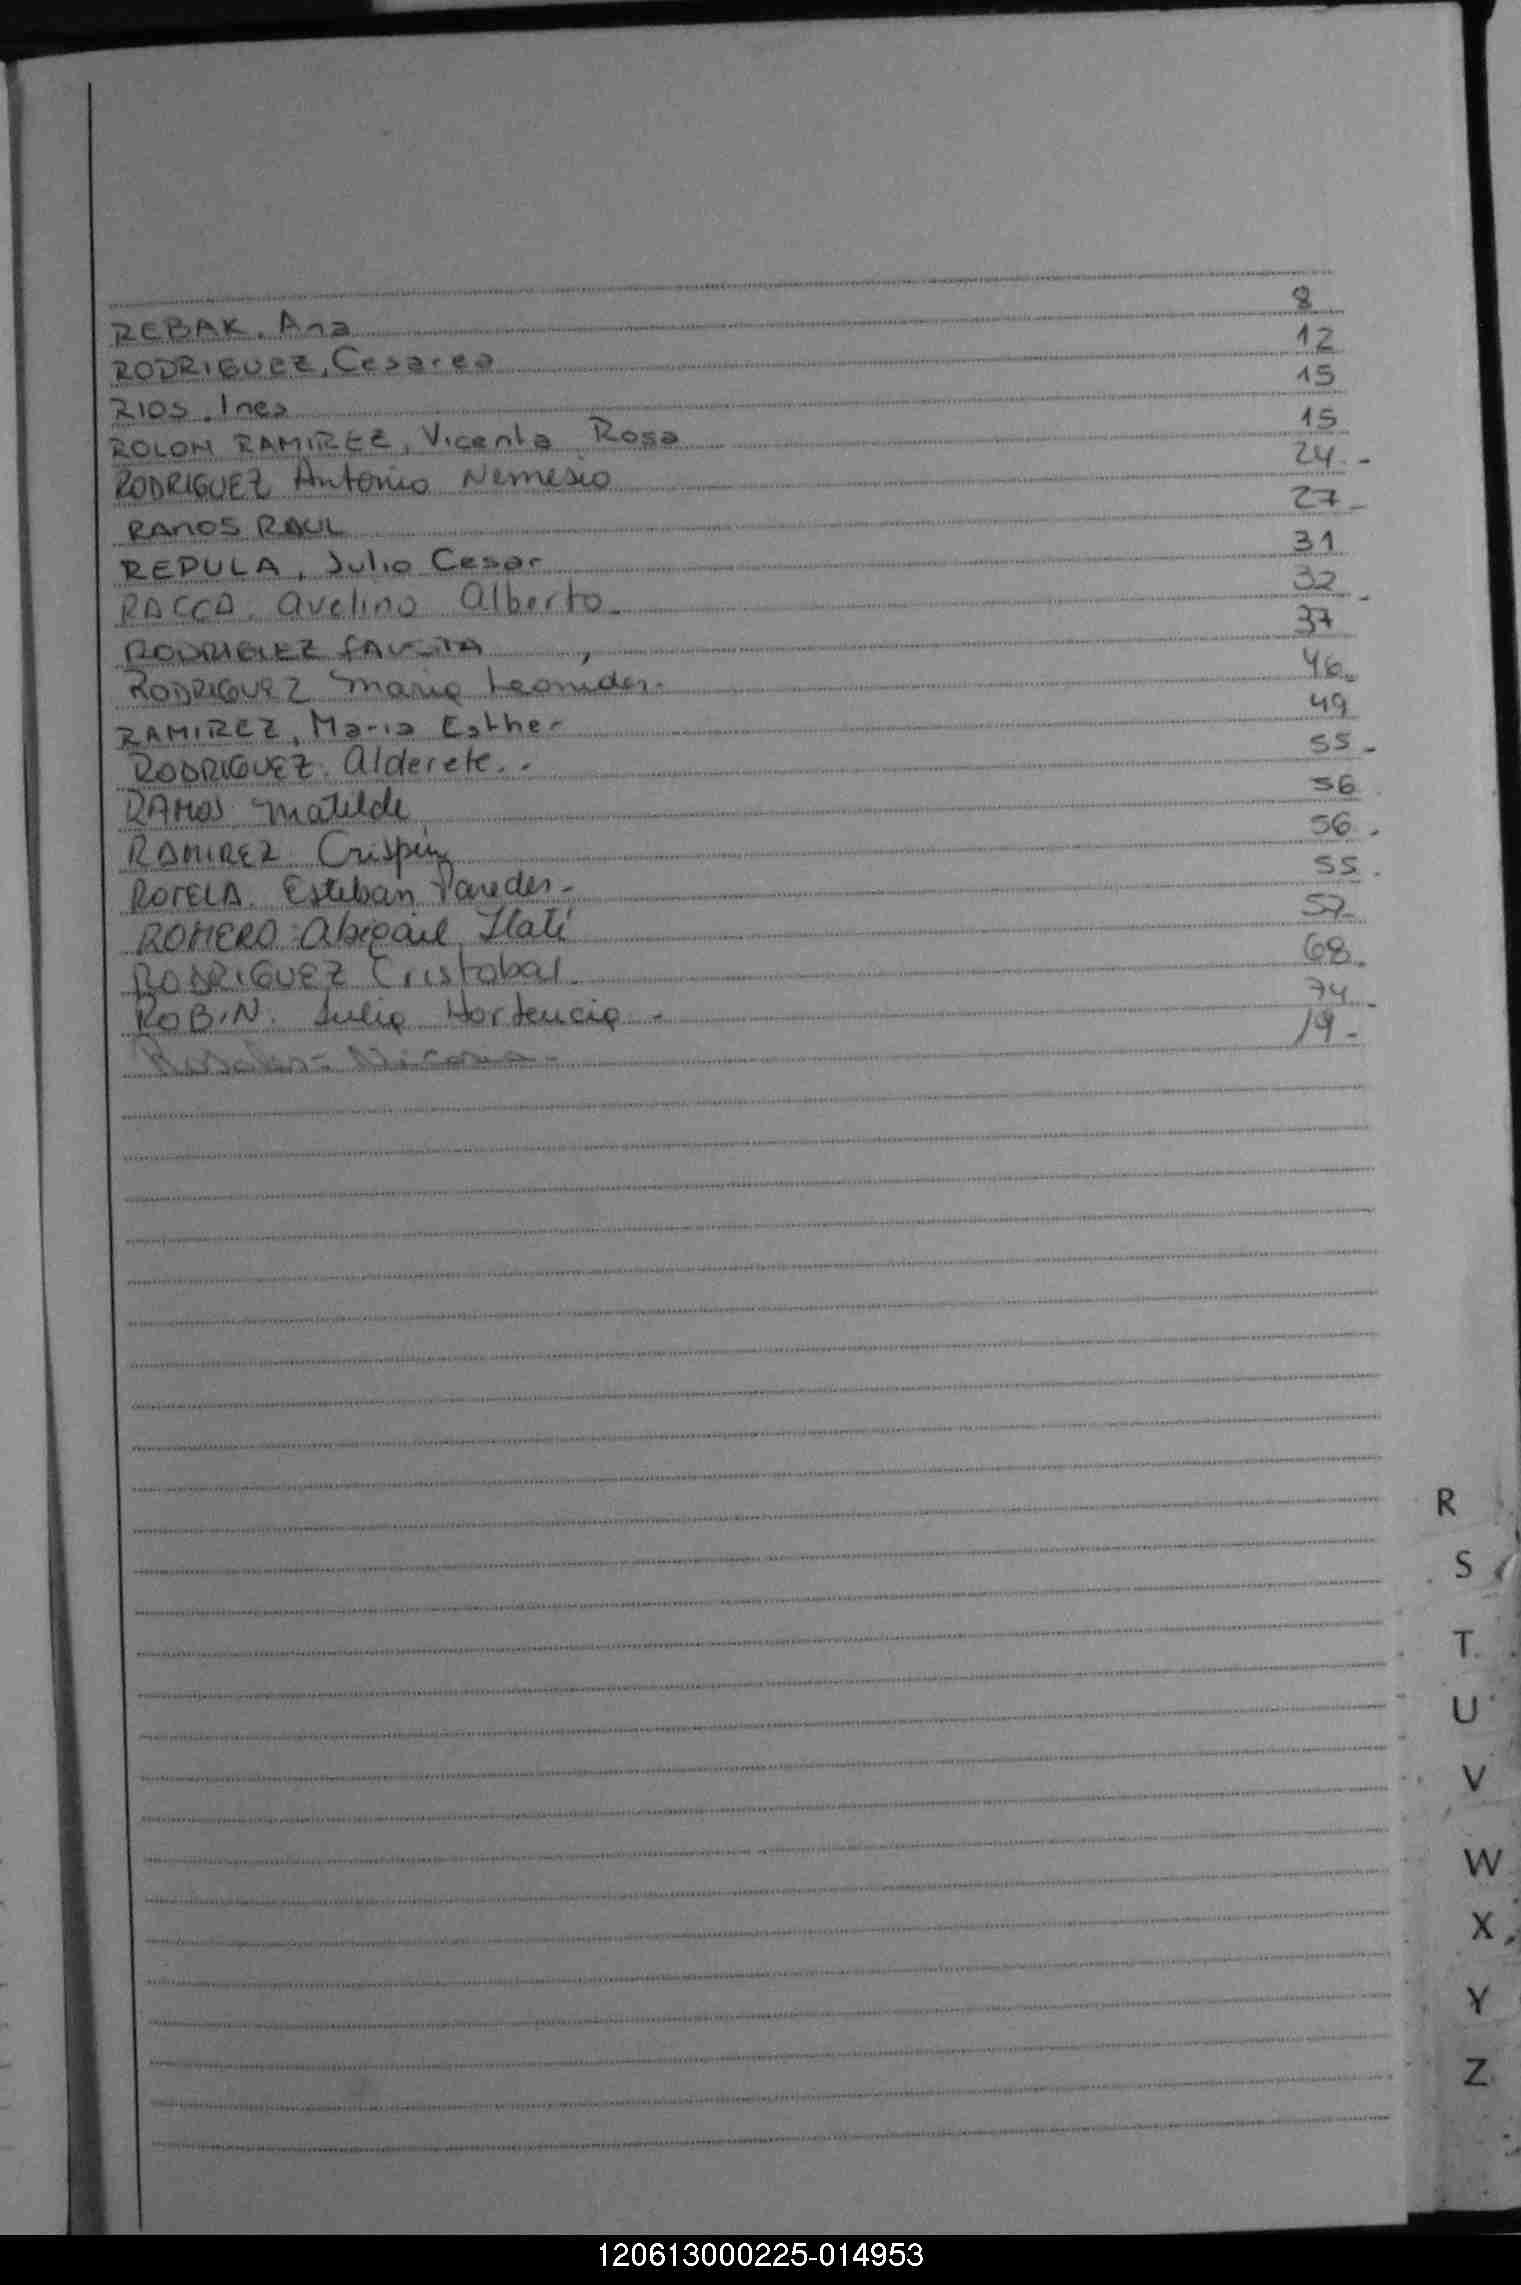 REBAK, Ana 8
RODRIGUEZ, Cesarea 12
RIOS, Ines 15
ROLON RAMIREZ, Vicenta Rosa 15
RODRIGUEZ Antonio Nemesio 24.-
RAMOS RAUL 27-
REPULA, Julio Cesar 31
RACCA. Avelino Alberto. 32-
RODRIGUEZ FAUSTA 37
RODRIGUEZ Maria Leonides. 46-
RAMIREZ, Maria Esther 49
RODRIGUEZ. Alderete.. 55-
RAMOS Matilde 56.
RAMIREZ Crispin 56.
ROTELA. Esteban Paredes- 55.
ROMERO Abigail Itati 57-
RODRIGUEZ Cristobal. 68-
ROBIN. Julia Hortencia - 74-
Rosales- 19-
R
S
T
U
V
W
X
Y
Z
120613000225-014953